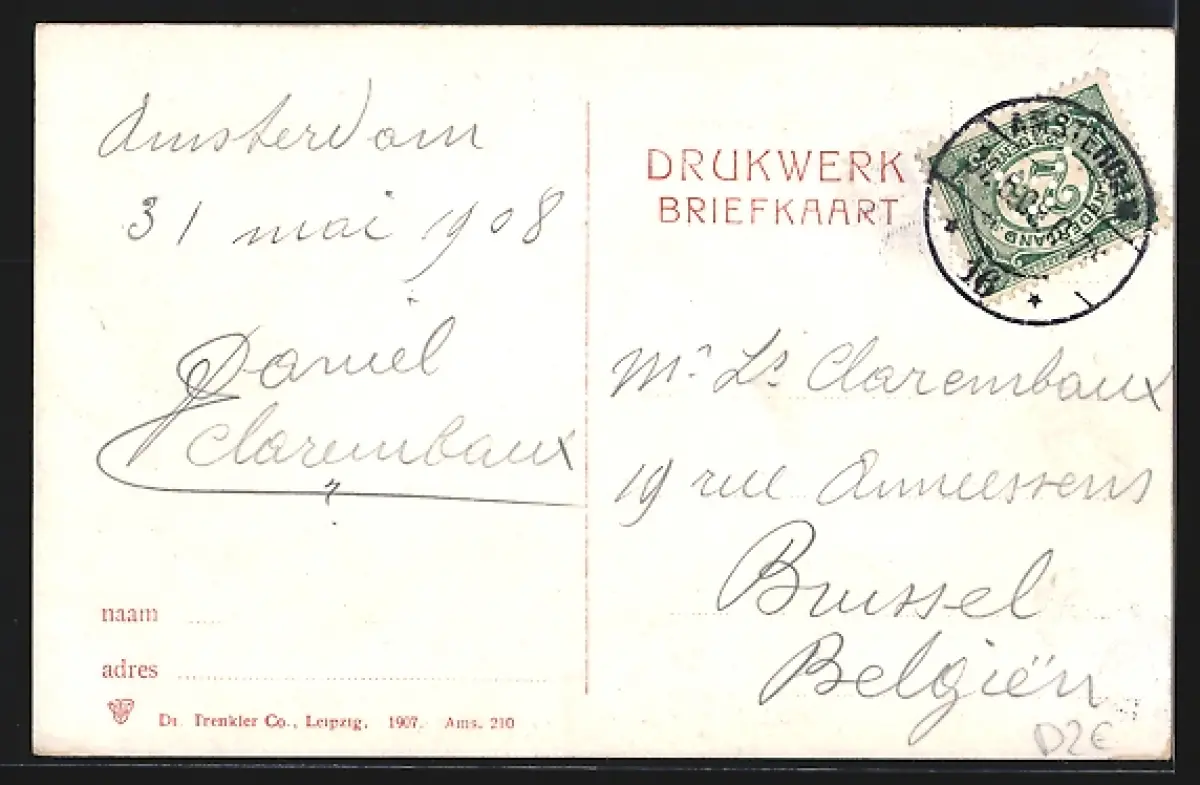 Amsterdam
31 mai 1908
Daniel
Clarembaux
naam
adres
Dr. Trenkler Co., Leipzig. 1907. Ams. 210
DRUKWERK
BRIEFKAART
AMSTERDAM
16
NEDERLAND
Mr Ls Clarembaux
19 rue Anneessens
Brussel
Belgiën
D2€